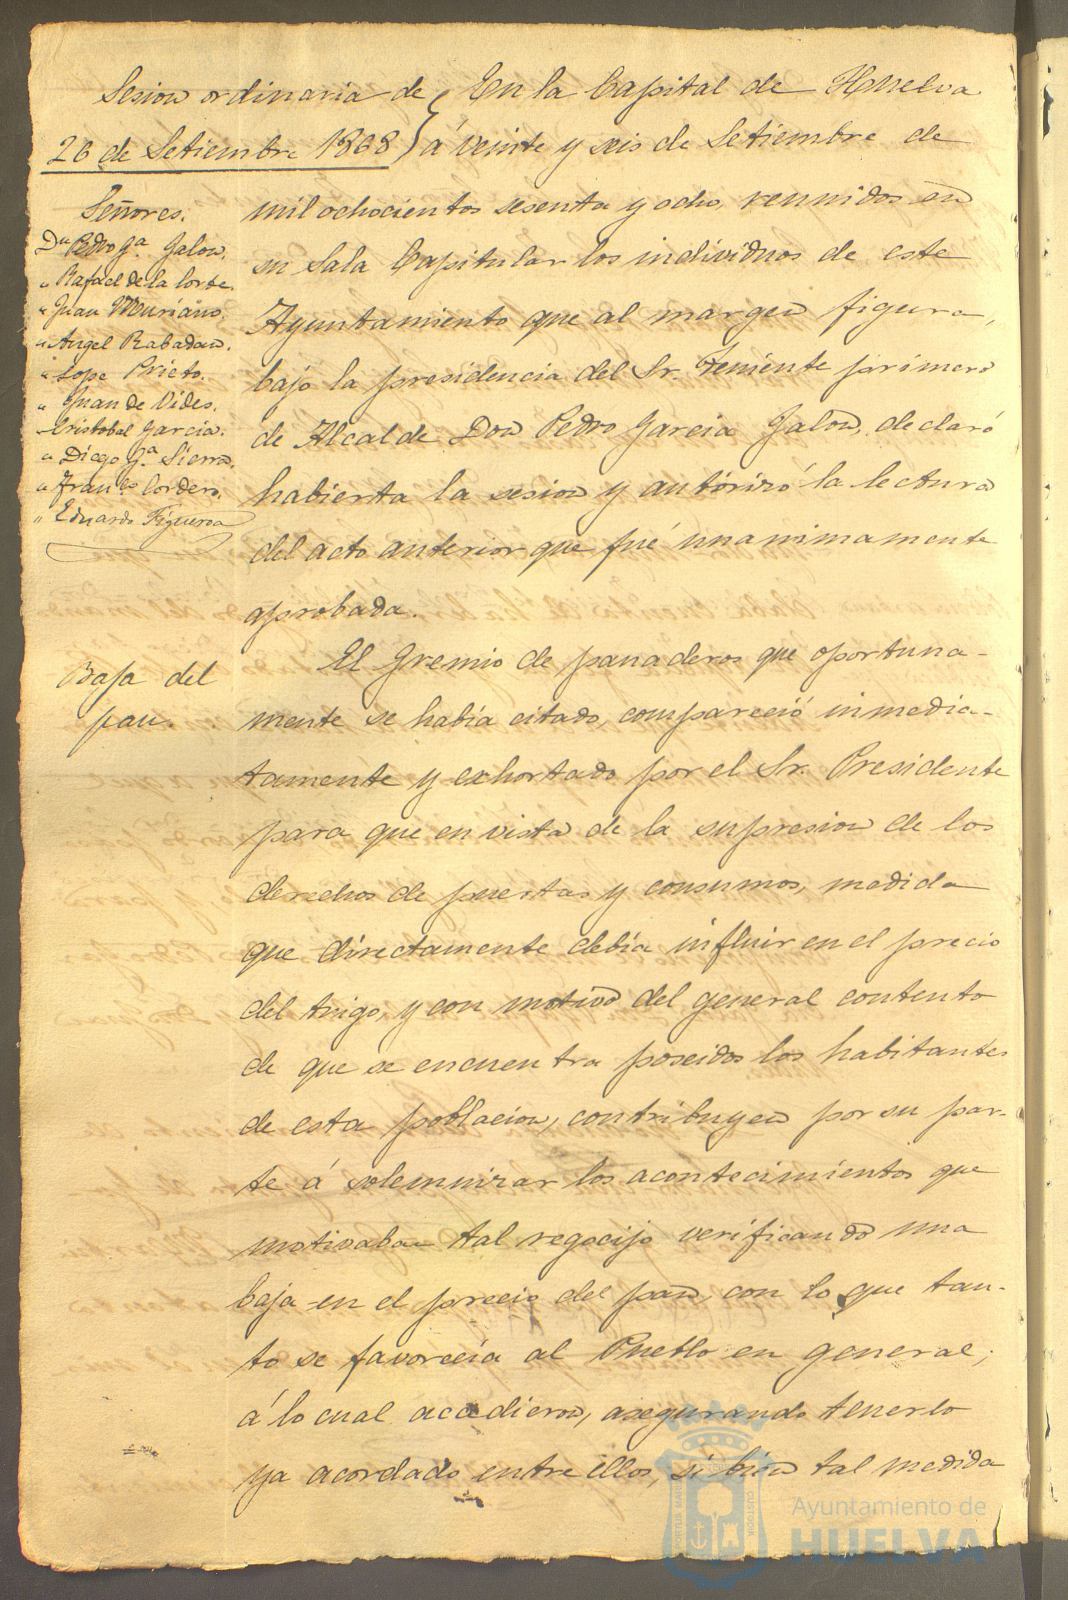 Sesion ordinaria de
26 de Setiembre 1868
Señores.
Dn Pedro Ga. Jalon.
" Rafael de la Corte.
" Juan Muriano.
" Angel Rabadan.
" Lope Prieto.
" Juan de Vides.
" Cristobal Garcia.
" Diego Ga. Sierra.
" Franco Cordero.
" Eduardo Figueroa
En la Capital de Huelva
á veinte y seis de Setiembre de
mil ochocientos sesenta y ocho, reunidos en
su Sala Capitular los individuos de este
Ayuntamiento que al margen figura,
bajo la presidencia del Sr. Teniente primero
de Alcalde Don Pedro Garcia Jalon, declaró
habierta la sesion y autórizó la lectura
del acto anterior que fué unanimamente
aprobada.
Baja del
pan.
El Gremio de panaderos que oportuna-
mente se había citado, compareció inmedia-
tamente y exhortado por el Sr. Presidente
para que en vista de la supresion de los
derechos de puertas y consumos, medida
que directamente debía influir en el precio
del trigo, y con motivo del general contento
de que se encuentra poseidos los habitantes
de esta poblacion, contribuyen por su par-
te á solemnizar los acontecimientos que
motivaban tal regocijo verificando una
baja en el precio del pan, con lo que tan-
to se favorecía al Pueblo en general;
á lo cual accedieron, asegurando tenerlo
ya acordado entre ellos, si bien tal medida
PORTUS MARIS
CUSTODIA
Ayuntamiento de
HUELVA